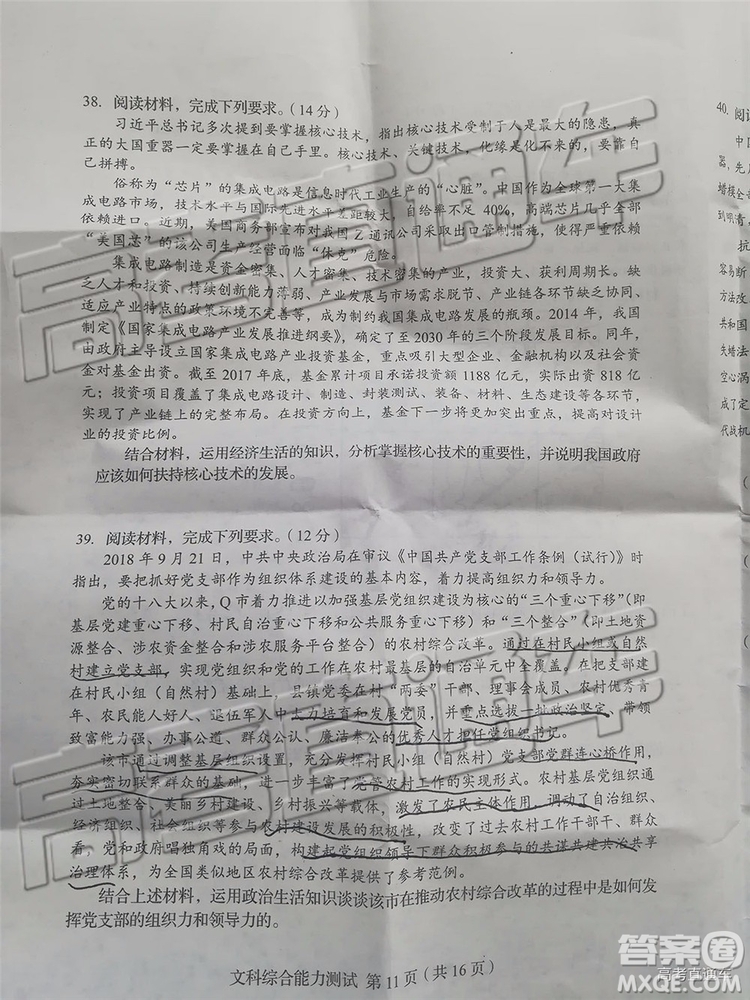 38. 阅读材料，完成下列要求。（14分）
习近平总书记多次提到要掌握核心技术，指出核心技术受制于人是最大的隐患，真
正的大国重器一定要掌握在自己手里。核心技术、关键技术，化缘是化不来的，要靠自
己拼搏。
俗称为“芯片”的集成电路是信息时代工业生产的“心脏”。中国作为全球第一大集
成电路市场，技术水平与国际先进水平差距较大，自给率不足 40%，高端芯片几乎全部
依赖进口。近期，美国商务部宣布对我国Z通讯公司采取出口管制措施，使严重依赖
“美国芯”的该公司生产经营面临“休克”危险。
集成电路制造是资金密集、人才密集、技术密集的产业，投资大、获利周期长。缺
乏人才和投资、持续创新能力薄弱、产业发展与市场需求脱节、产业链各环节缺乏协同、
适应产业特点的政策环境不完善等，成为制约我国集成电路发展的瓶颈。2014 年，我国
制定《国家集成电路产业发展推进纲要》，确定了至 2030 年的三个阶段发展目标。同年，
由政府主导设立国家集成电路产业投资基金，重点吸引大型企业、金融机构以及社会资
金对基金出资。截至 2017 年底，基金累计项目承诺投资额 1188 亿元，实际出资 818 亿
元；投资项目覆盖了集成电路设计、制造、封装测试、装备、材料、生态建设等各环节，
实现了产业链上的完整布局。在投资方向上，基金下一步将更加突出重点，提高对设计
业的投资比例。
结合材料，运用经济生活的知识，分析掌握核心技术的重要性，并说明我国政府
应该如何扶持核心技术的发展。
39. 阅读材料，完成下列要求。（12分）
2018 年 9 月 21 日，中共中央政治局在审议《中国共产党支部工作条例（试行）》时
指出，要把抓好党支部作为组织体系建设的基本内容，着力提高组织力和领导力。
党的十八大以来，Q市着力推进以加强基层党组织建设为核心的“三个重心下移”（即
基层党建重心下移、村民自治重心下移和公共服务重心下移）和“三个整合”（即土地资
源整合、涉农资金整合和涉农服务平台整合）的农村综合改革。通过在村民小组或自然
村建立党支部，实现党组织和党的工作在农村最基层的自治单元中全覆盖。在把支部建
在村民小组（自然村）基础上，县镇党委在村“两委”干部、理事会成员、农村优秀青
年、农民能人好人、退伍军人中大力培育和发展党员，并重点选拔一批政治坚定、带领
致富能力强、办事公道、群众公认、廉洁奉公的优秀人才担任党组织书记。
该市通过调整基层组织设置，充分发挥村民小组（自然村）党支部党群连心桥作用，
夯实密切联系群众的基础，进一步丰富了党管农村工作的实现形式。农村基层党组织通
过土地整合、美丽乡村建设、乡村振兴等载体，激发了农民主体作用，调动了自治组织、
经济组织、社会组织等参与农村建设发展的积极性，改变了过去农村工作干部干、群众
看，党和政府唱独角戏的局面，构建起党组织领导下群众积极参与的共谋共建共治共享
治理体系，为全国类似地区农村综合改革提供了参考范例。
结合上述材料，运用政治生活知识谈谈该市在推动农村综合改革的过程中是如何发
挥党支部的组织力和领导力的。
文科综合能力测试 第11页（共16页）
40. 阅读
高考直通车
高考直通车
答案圈
MXQE.COM
高考直通车